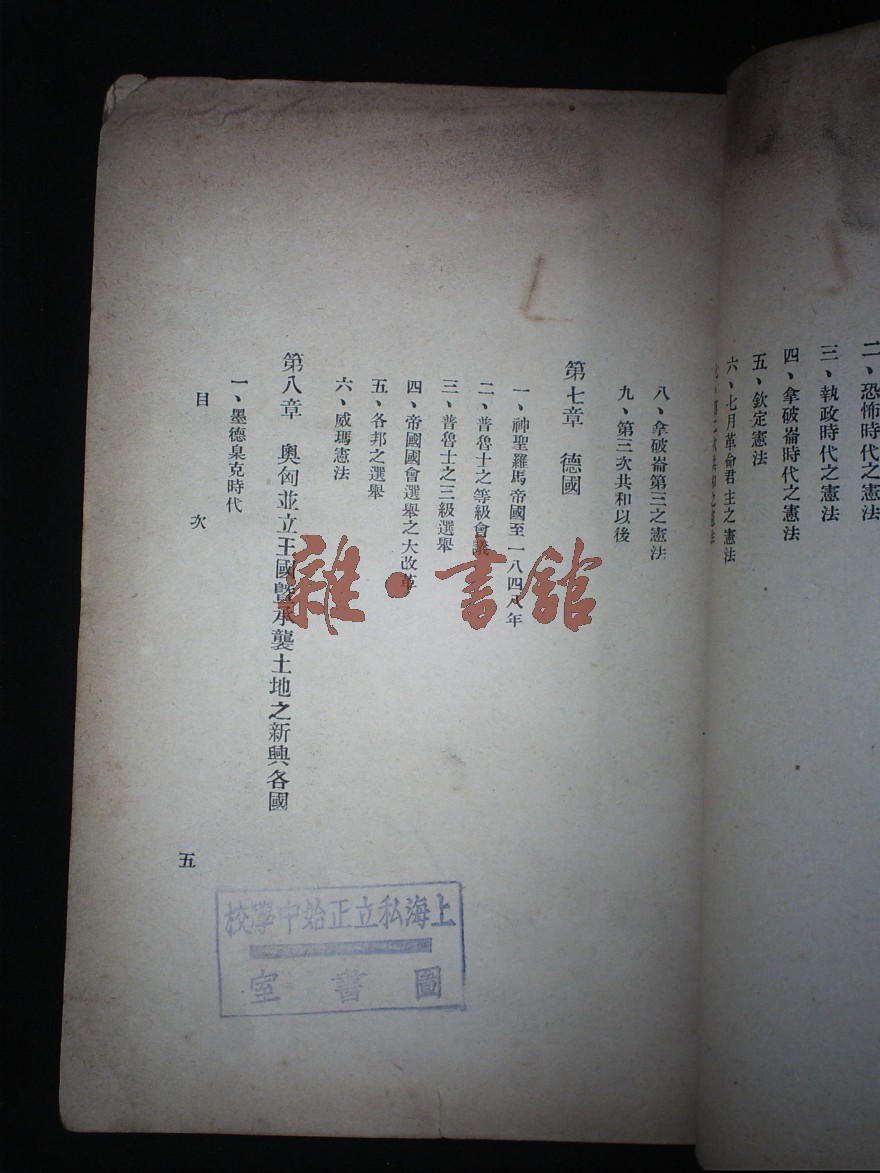 二、恐怖時代之憲法
三、執政時代之憲法
四、拿破崙時代之憲法
五、欽定憲法
六、七月革命君主之憲法
八、拿破崙第三之憲法
九、第三次共和以後
第七章 德國
一、神聖羅馬帝國至一八四八年
二、普魯士之等級會議
三、普魯士之三級選舉
四、帝國國會選舉之大改革
五、各邦之選舉
六、威瑪憲法
第八章 奧匈並立王國曁承襲土地之新興各國
一、墨德臬克時代
目次
五
雜·書館
上海私立正始中學校
圖書室